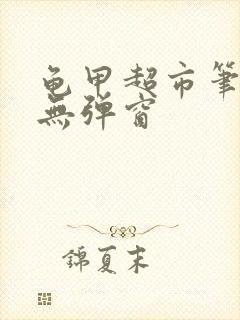 龟甲超市笔
無弹窗
錦夏末